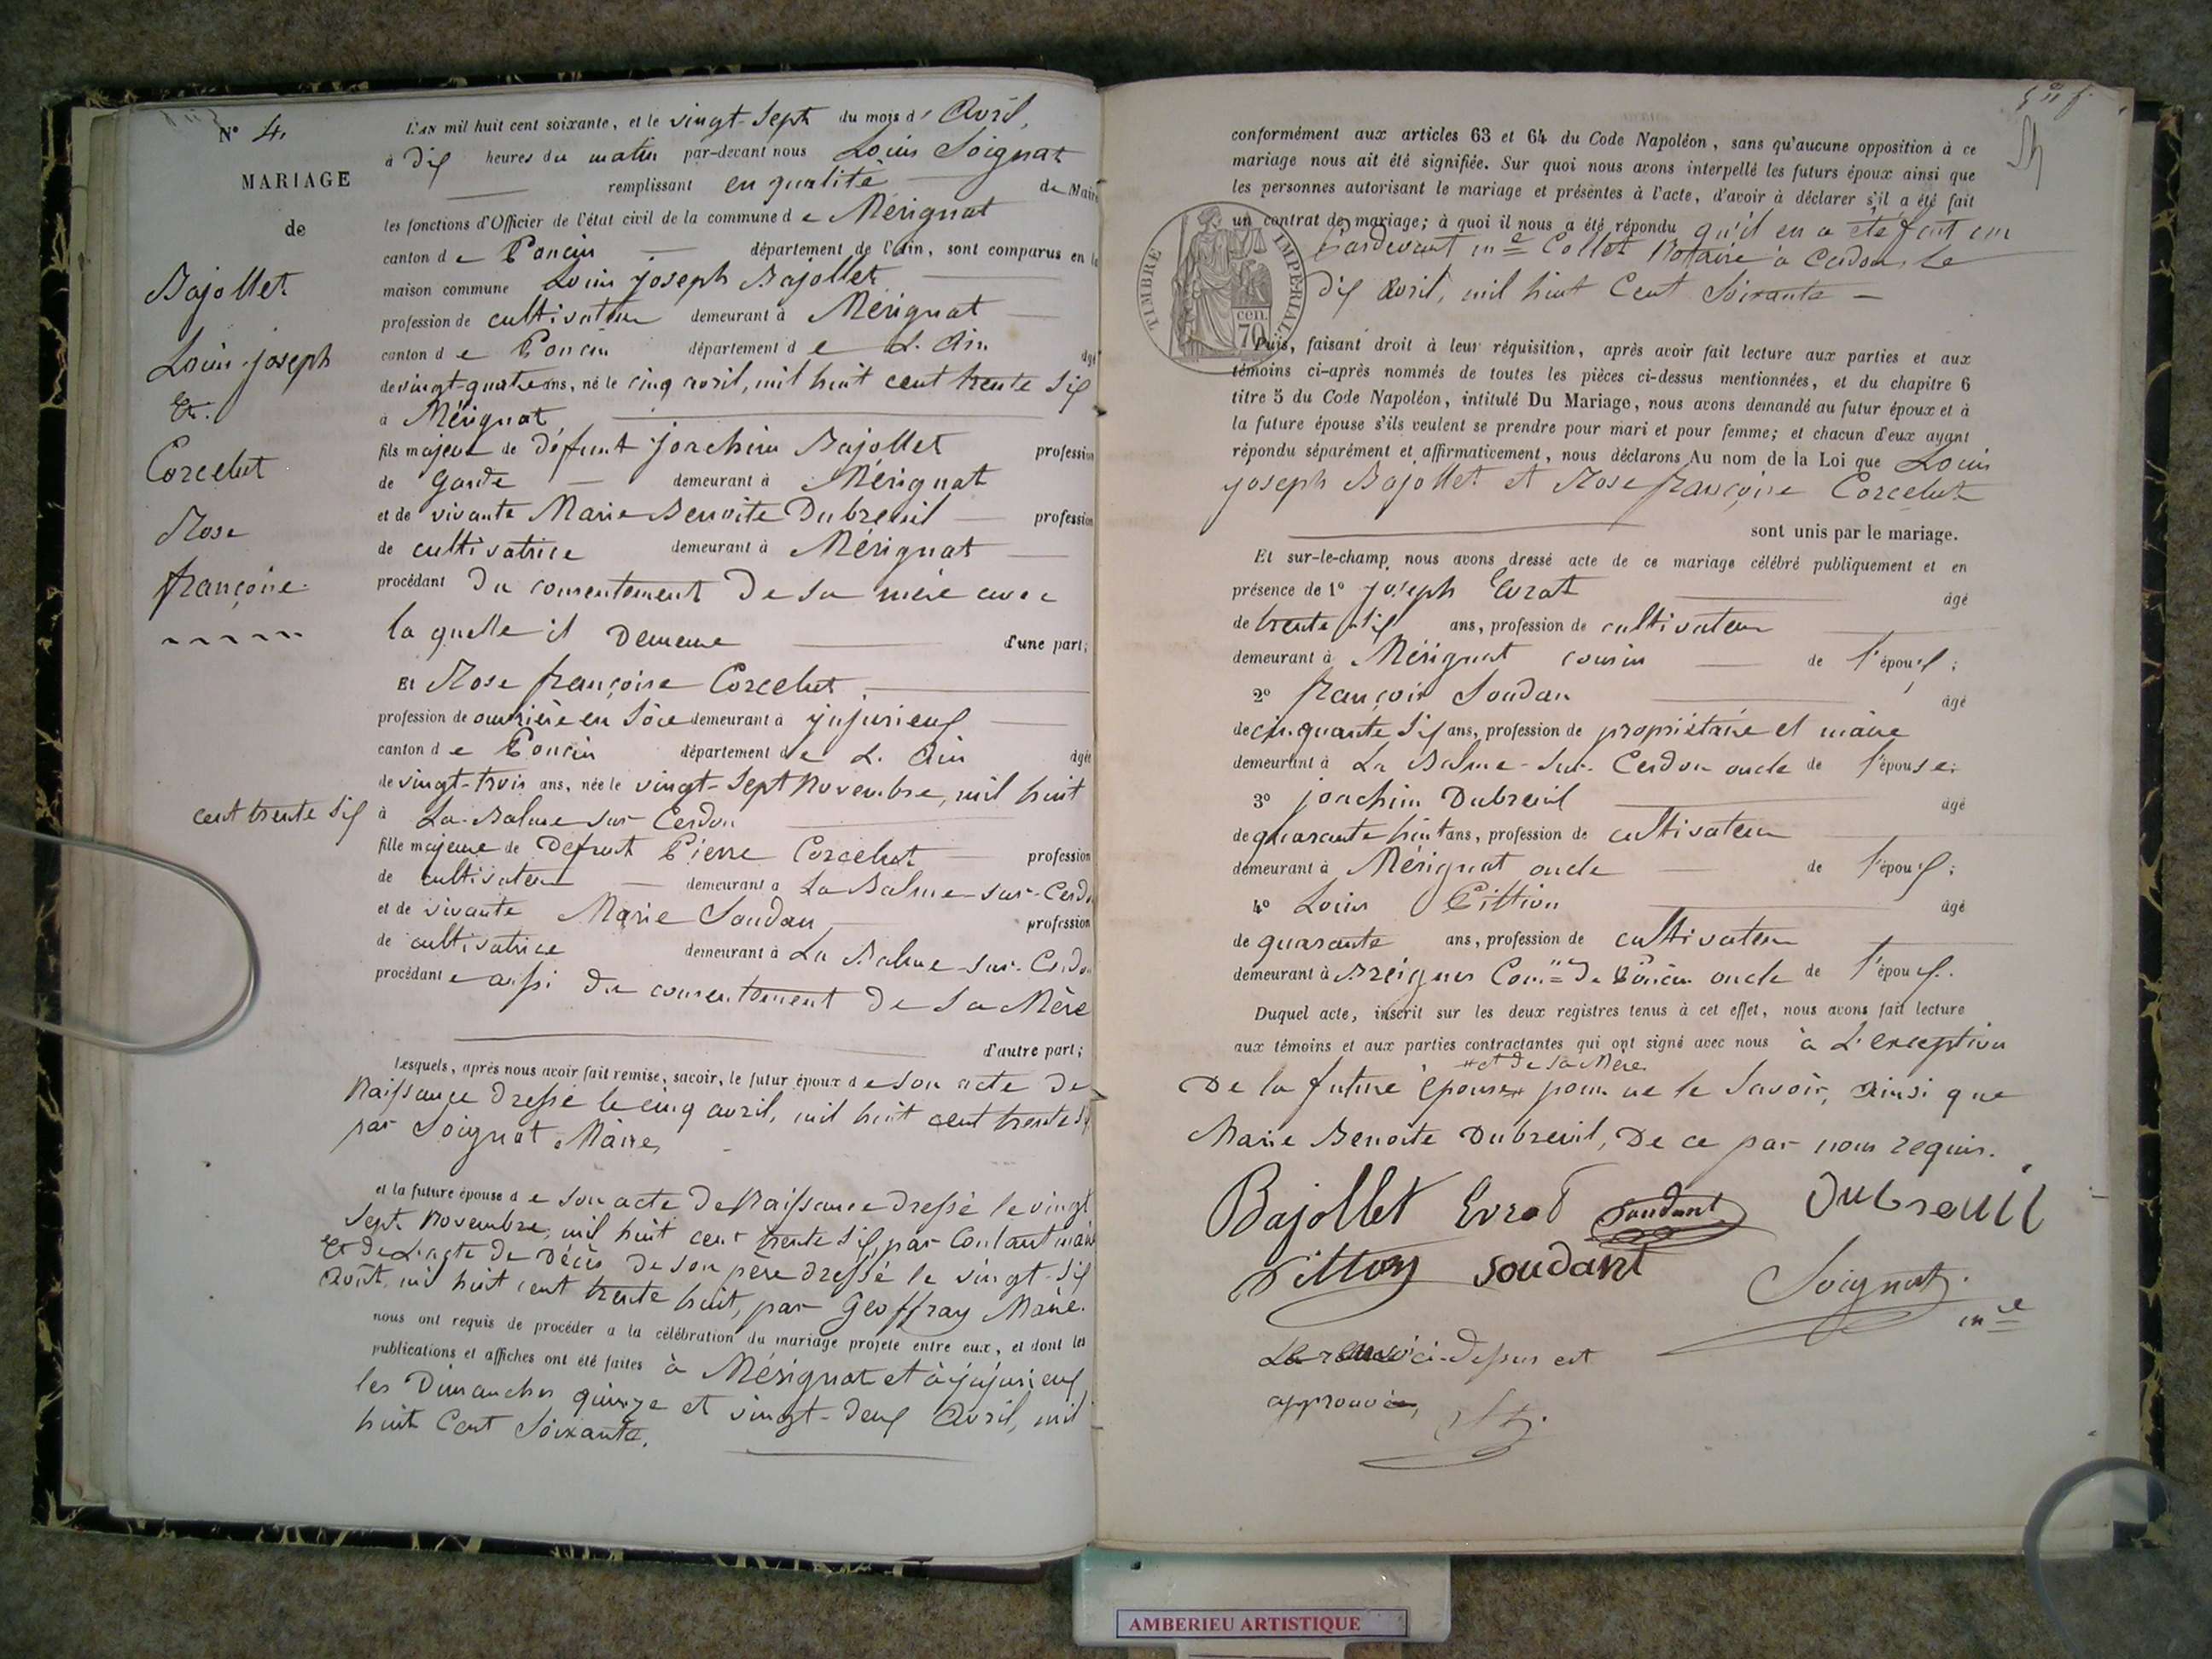 N° 4.
MARIAGE
de
Bajollet
Louis-joseph
Et.
Corcelut
Rose
françoise.
cent trente Six
L'AN mil huit cent soixante, et le vingt-Sept du mois d' Avril,
à dix heures du matin par-devant nous Louis Soignat
remplissant en qualité de Maire
les fonctions d'Officier de l'état civil de la commune de Mérignat
canton de Poncin département de l'Ain, sont comparus en la
maison commune Louis joseph Bajollet
profession de cultivateur demeurant à Mérignat
canton de Poncin département de L'Ain âgé
de vingt-quatre ans, né le cinq avril, mil huit cent trente Six
à Mérignat
fils majeur de défunt joachim Bajollet profession
de garde demeurant à Mérignat
et de vivante Marie Benoite Dubreuil profession
de cultivatrice demeurant à Mérignat
procédant du consentement de sa mère avec
la quelle il demeure d'une part;
Et Rose françoise Corcelut
profession de ouvrière en Soie demeurant à jujurieux
canton de Poncin département de L'Ain âgée
de vingt-trois ans, née le vingt-Sept Novembre, mil huit
à La Balme sur Cerdon
fille majeure de Défunt Pierre Corcelut profession
de cultivateur demeurant à La Balme-sur-Cerdon
et de vivante Marie Soudan profession
de cultivatrice demeurant à La Balme-sur-Cerdon
procédant e aussi du consentement de sa Mère
d'autre part;
Lesquels, après nous avoir fait remise, savoir, le futur époux de son acte de
Naissance dressé le cinq avril, mil huit cent trente Six
par Soignat Maire,
et la future épouse de son acte de Naissance dressé le vingt
Sept Novembre, mil huit cent trente Six, par Contant maire
Et de L'acte de Décès de son père dressé le vingt-Six
Août, mil huit cent trente huit, par Geoffray Maire.
nous ont requis de procéder a la célébration du mariage projeté entre eux, et dont les
publications et affiches ont été faites à Mérignat et à jujurieux
les Dimanches quinze et vingt-deux Avril, mil
huit Cent Soixante.
conformément aux articles 63 et 64 du Code Napoléon, sans qu'aucune opposition à ce
mariage nous ait été signifiée. Sur quoi nous avons interpellé les futurs époux ainsi que
les personnes autorisant le mariage et présentes à l'acte, d'avoir à déclarer s'il a été fait
un contrat de mariage; à quoi il nous a été répondu qu'il en a été fait un
Pardevant Me Collet Notaire à Cerdon, Le
dix avril, mil huit Cent Soixante
TIMBRE IMPERIAL
cen.
70
Puis, faisant droit à leur réquisition, après avoir fait lecture aux parties et aux
témoins ci-après nommés de toutes les pièces ci-dessus mentionnées, et du chapitre 6
titre 5 du Code Napoléon, intitulé Du Mariage, nous avons demandé au futur époux et à
la future épouse s'ils veulent se prendre pour mari et pour femme; et chacun d'eux ayant
répondu séparément et affirmativement, nous déclarons Au nom de la Loi que Louis
joseph Bajollet et Rose françoise Corcelut
sont unis par le mariage.
Et sur-le-champ nous avons dressé acte de ce mariage célébré publiquement et en
présence de 1° joseph Evrat âgé
de trente six ans, profession de cultivateur
demeurant à Mérignat cousin de l'époux;
2° françois Soudan âgé
de cinquante Six ans, profession de propriétaire et maire
demeurant à La Balme-sur-Cerdon oncle de l'épouse;
3° joachim Dubreuil âgé
de quarante huit ans, profession de cultivateur
demeurant à Mérignat oncle de l'époux;
4° Louis Pittion âgé
de quarante ans, profession de cultivateur
demeurant à Breignes Comne de Poncin oncle de l'époux.
Duquel acte, inscrit sur les deux registres tenus à cet effet, nous avons fait lecture
aux témoins et aux parties contractantes qui ont signé avec nous à L'exception
* et de sa Mère
De la future épouse * pour ne le Savoir, ainsi que
Marie Benoite Dubreuil, De ce par nous requis.
Bajollet Evrat Soudant Dubreuil
Pittion Soudant
Soignat.
me
Le renvoi ci-dessus est
approuvé,
AMBERIEU ARTISTIQUE